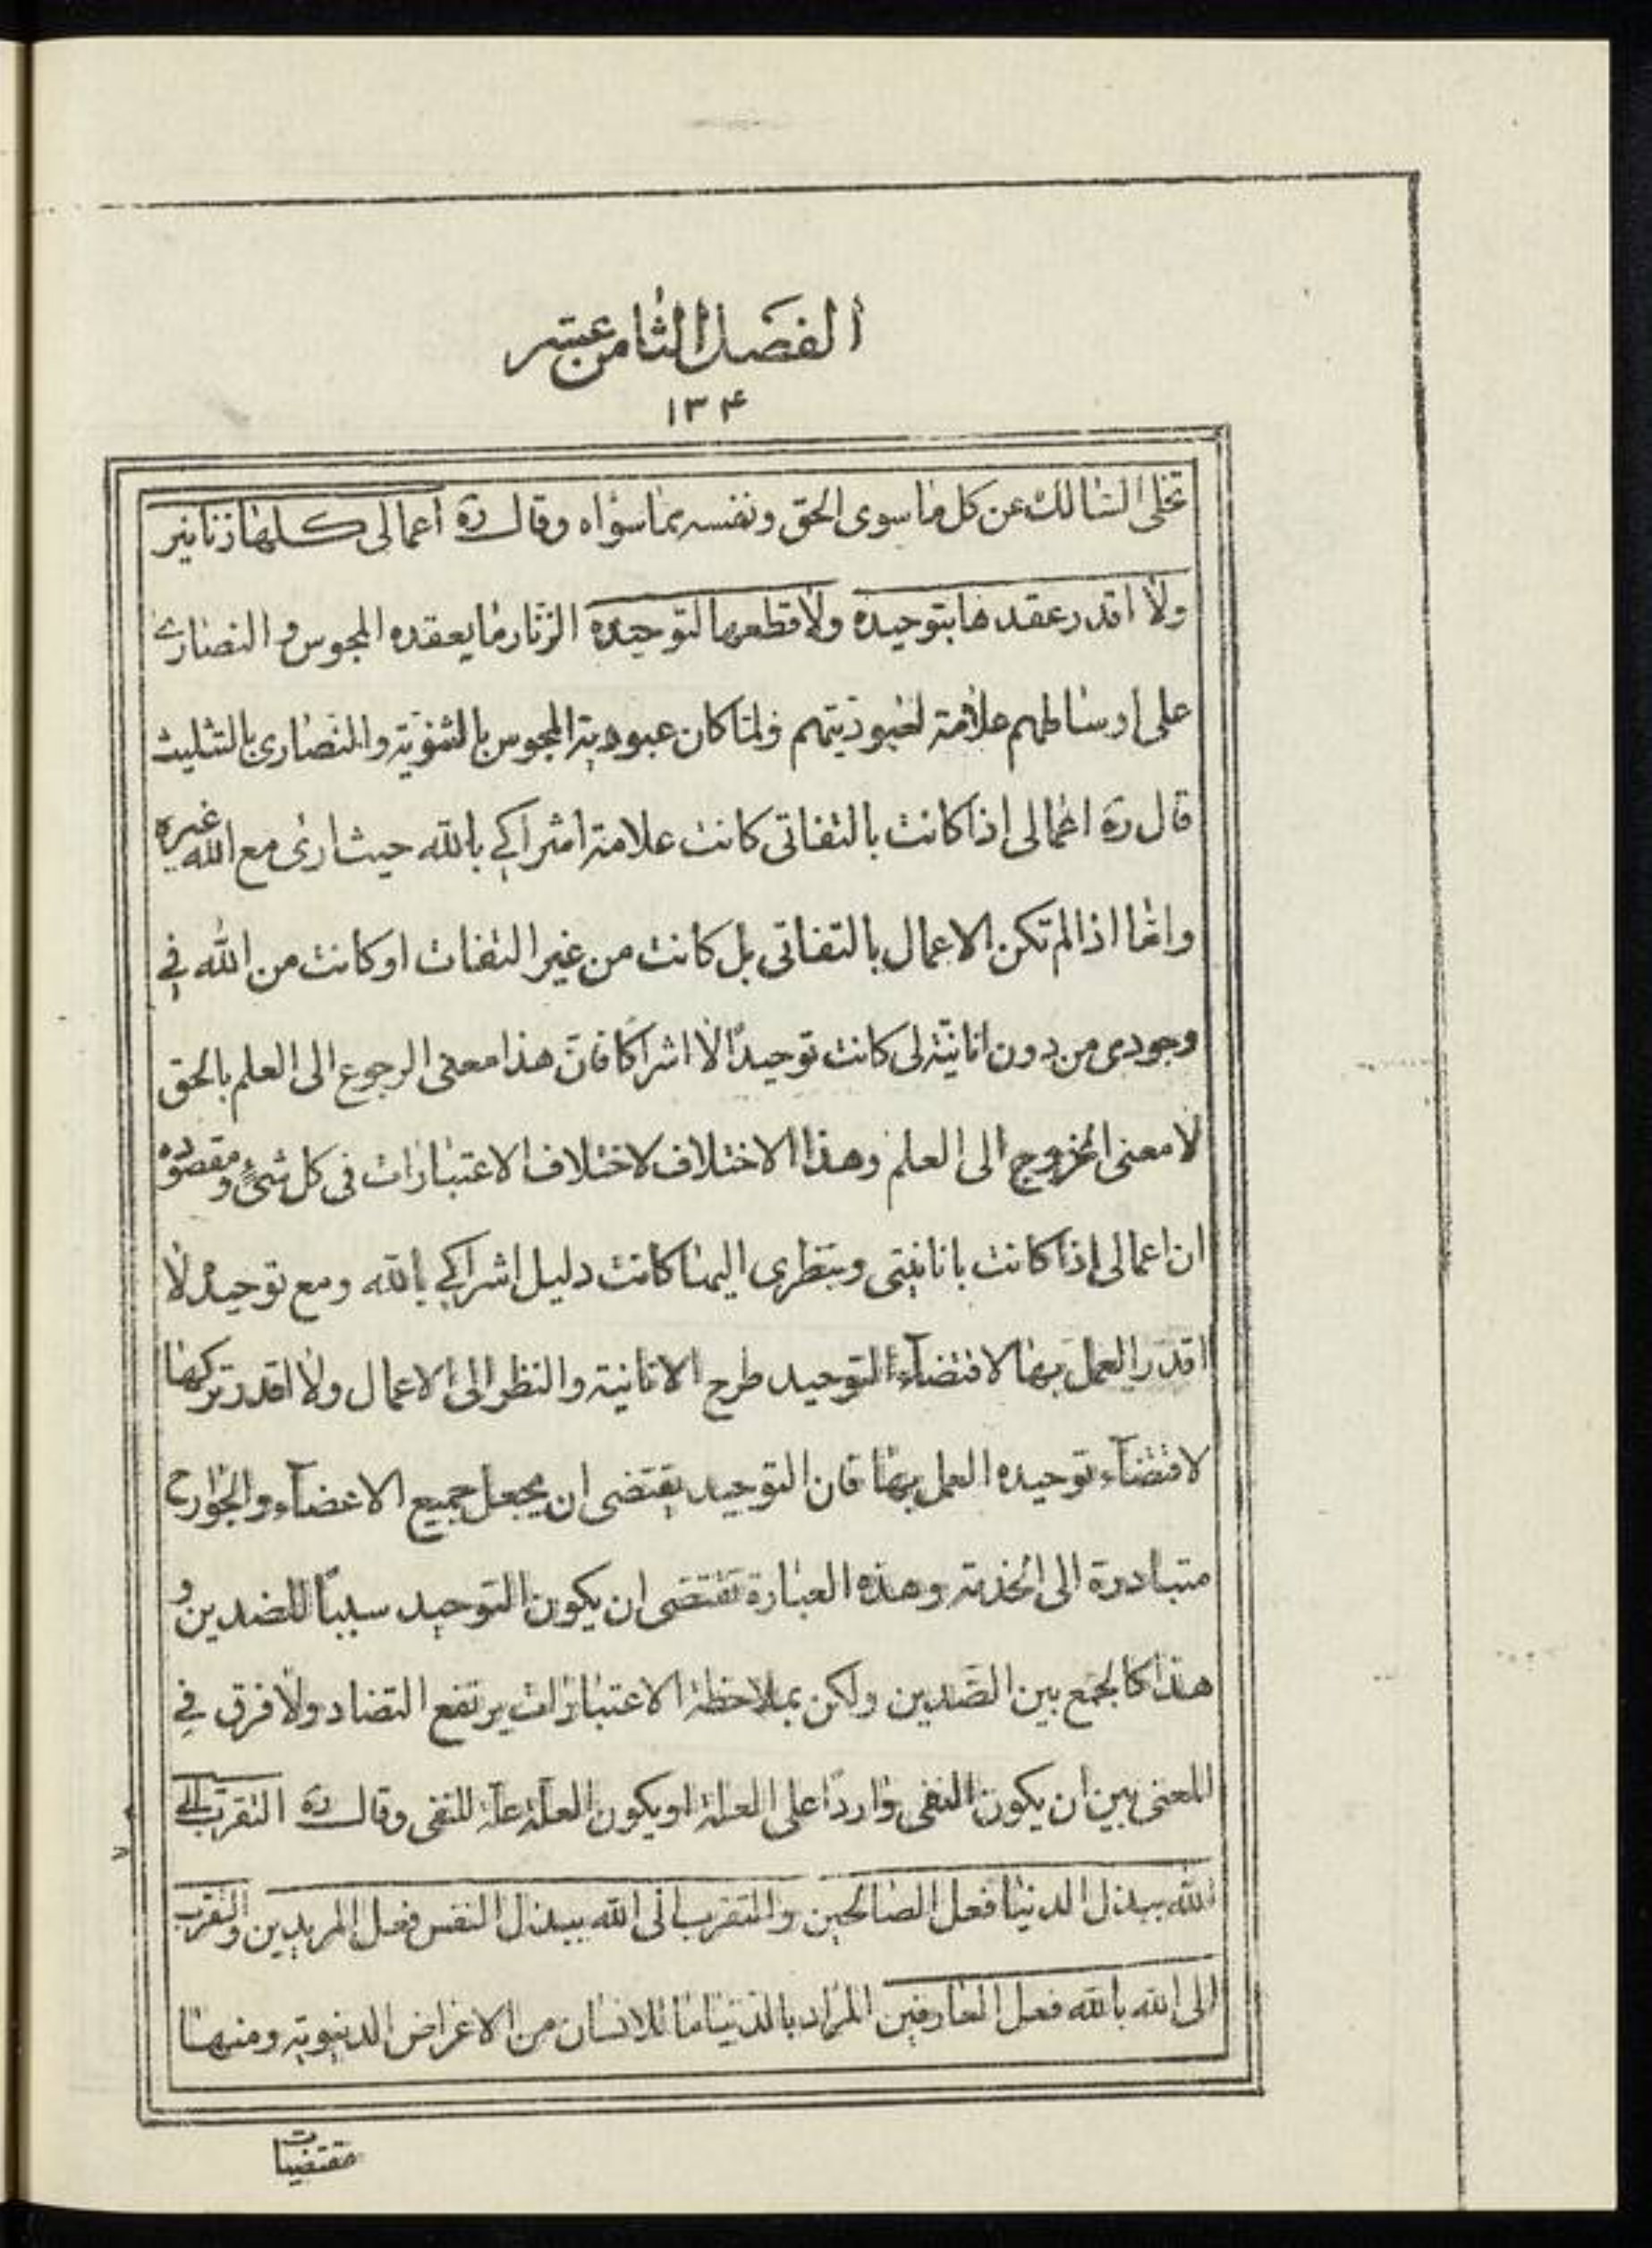 الفصل الثامن عشر
۱۳۴
تخلى السالك عن كل ما سوى الحق ونفسه بما سواه وقال ره اعمالى كلها زنانير
ولا اقدر عقدها بتوحيده ولا قطعها لتوحيده الزنار ما يعقده المجوس و النصارى
على اوساطهم علامة لعبوديتهم ولما كان عبودية المجوس بالثنوية والنصارى بالتثليث
قال ره اعمالى اذا كانت بالتفاتى كانت علامة اشراكى بالله حيث ارى مع الله غيره
واما اذا لم تكن الاعمال بالتفاتى بل كانت من غير التفات او كانت من الله فى
وجودى من دون انانية لى كانت توحيدًا لا اشراكا فان هذا معنى الرجوع الى العلم بالحق
لا معنى الخروج الى العلم وهذا الاختلاف لاختلاف الاعتبارات فى كل شئ ومقصوده
ان اعمالى اذا كانت بانانيتى وبنظرى اليها كانت دليل اشراكى بالله ومع توحيده لا
اقدر العمل بها لاقتضآء التوحيد طرح الانانية والنظر الى الاعمال ولا اقدر تركها
لاقتضآء توحيده العمل بها فان التوحيد يقتضى ان يجعل جميع الاعضآء والجوارح
متبادرة الى الخدمة وهذه العبارة تقتضى ان يكون التوحيد سببًا للضدين و
هذا كالجمع بين الضدين ولكن بملاحظة الاعتبارات يرتفع التضاد ولا فرق فى
المعنى بين ان يكون النفى واردًا على العلة او يكون العلة علة للنفى وقال ره التقرب الى
الله ببذل الدنيا فعل الصالحين والتقرب الى الله ببذل النفس فعل المريدين والتقرب
الى الله بالله فعل العارفين المراد بالدنيا ما للانسان من الاغراض الدنيوية ومنها
مقتضيات